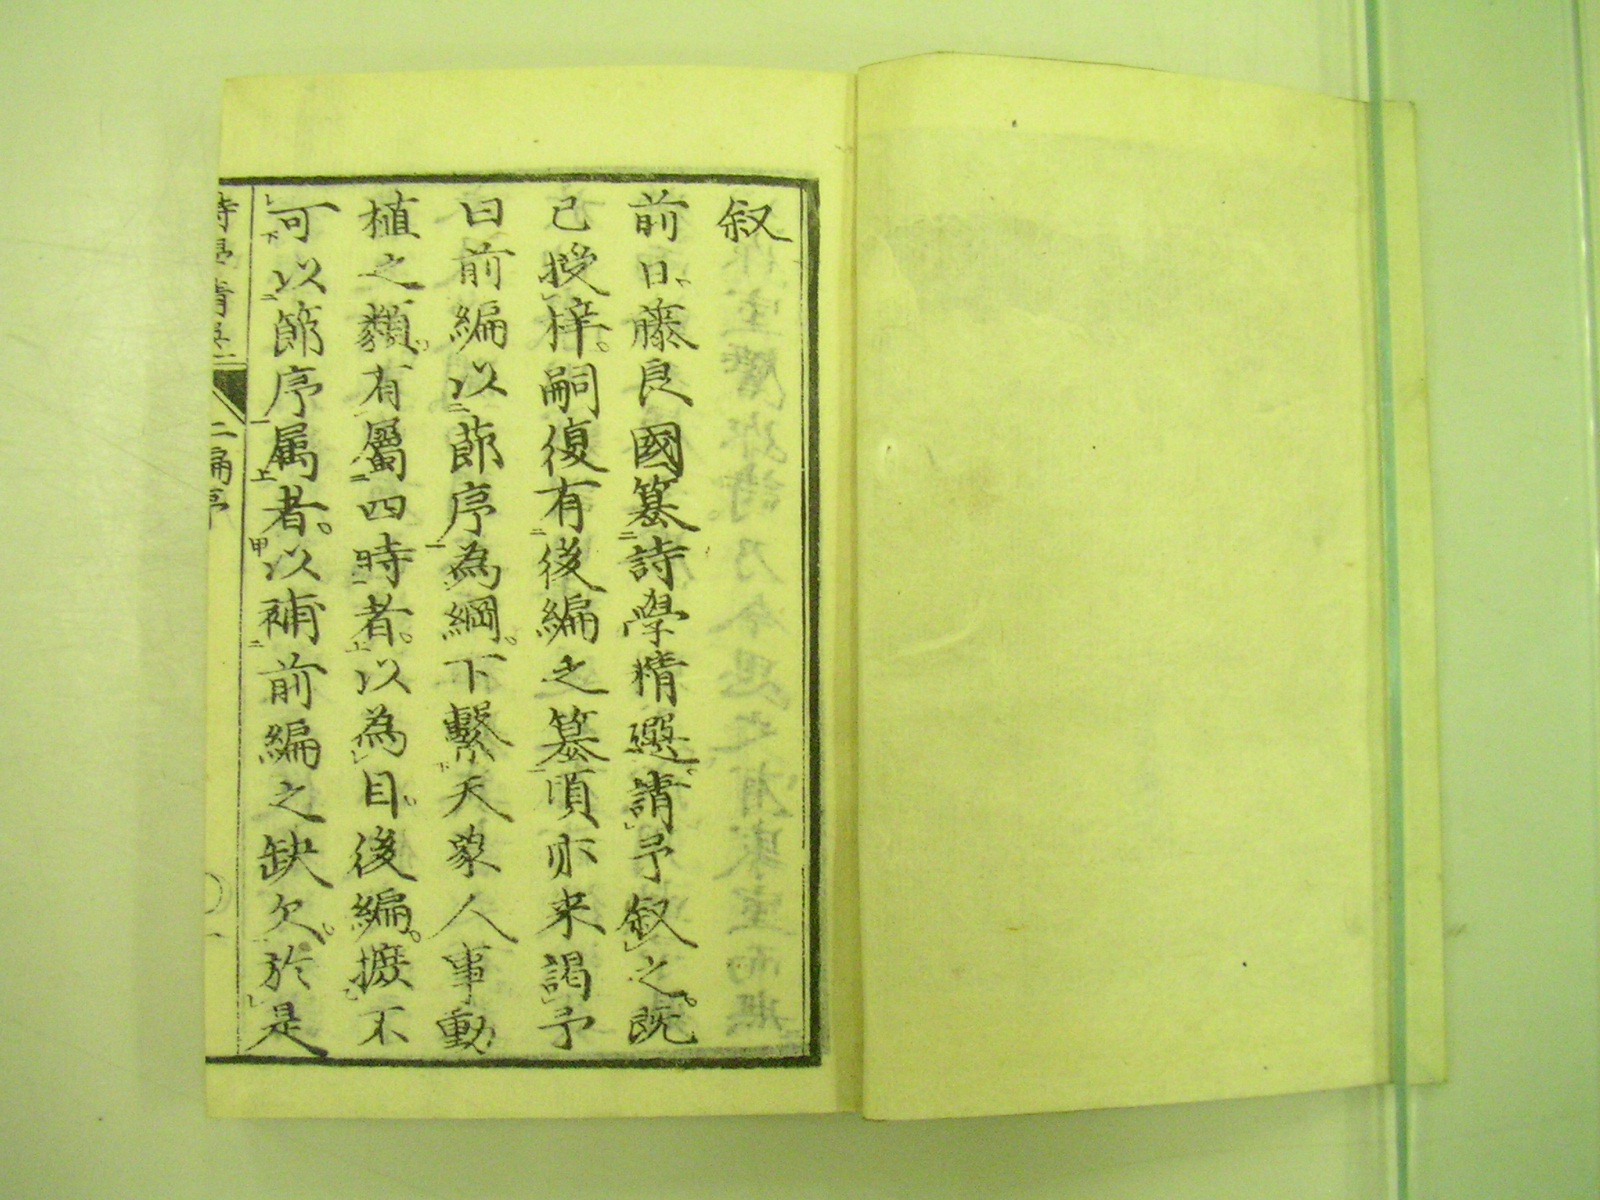 叙
前日藤良國纂詩學精選請予叙之既
已授梓嗣復有後編之纂頃亦来謁予
曰前編以節序為綱下繫天象人事動
植之類有屬四時者以為目後編摭不
可以節序属者以補前編之缺欠於是
二編序